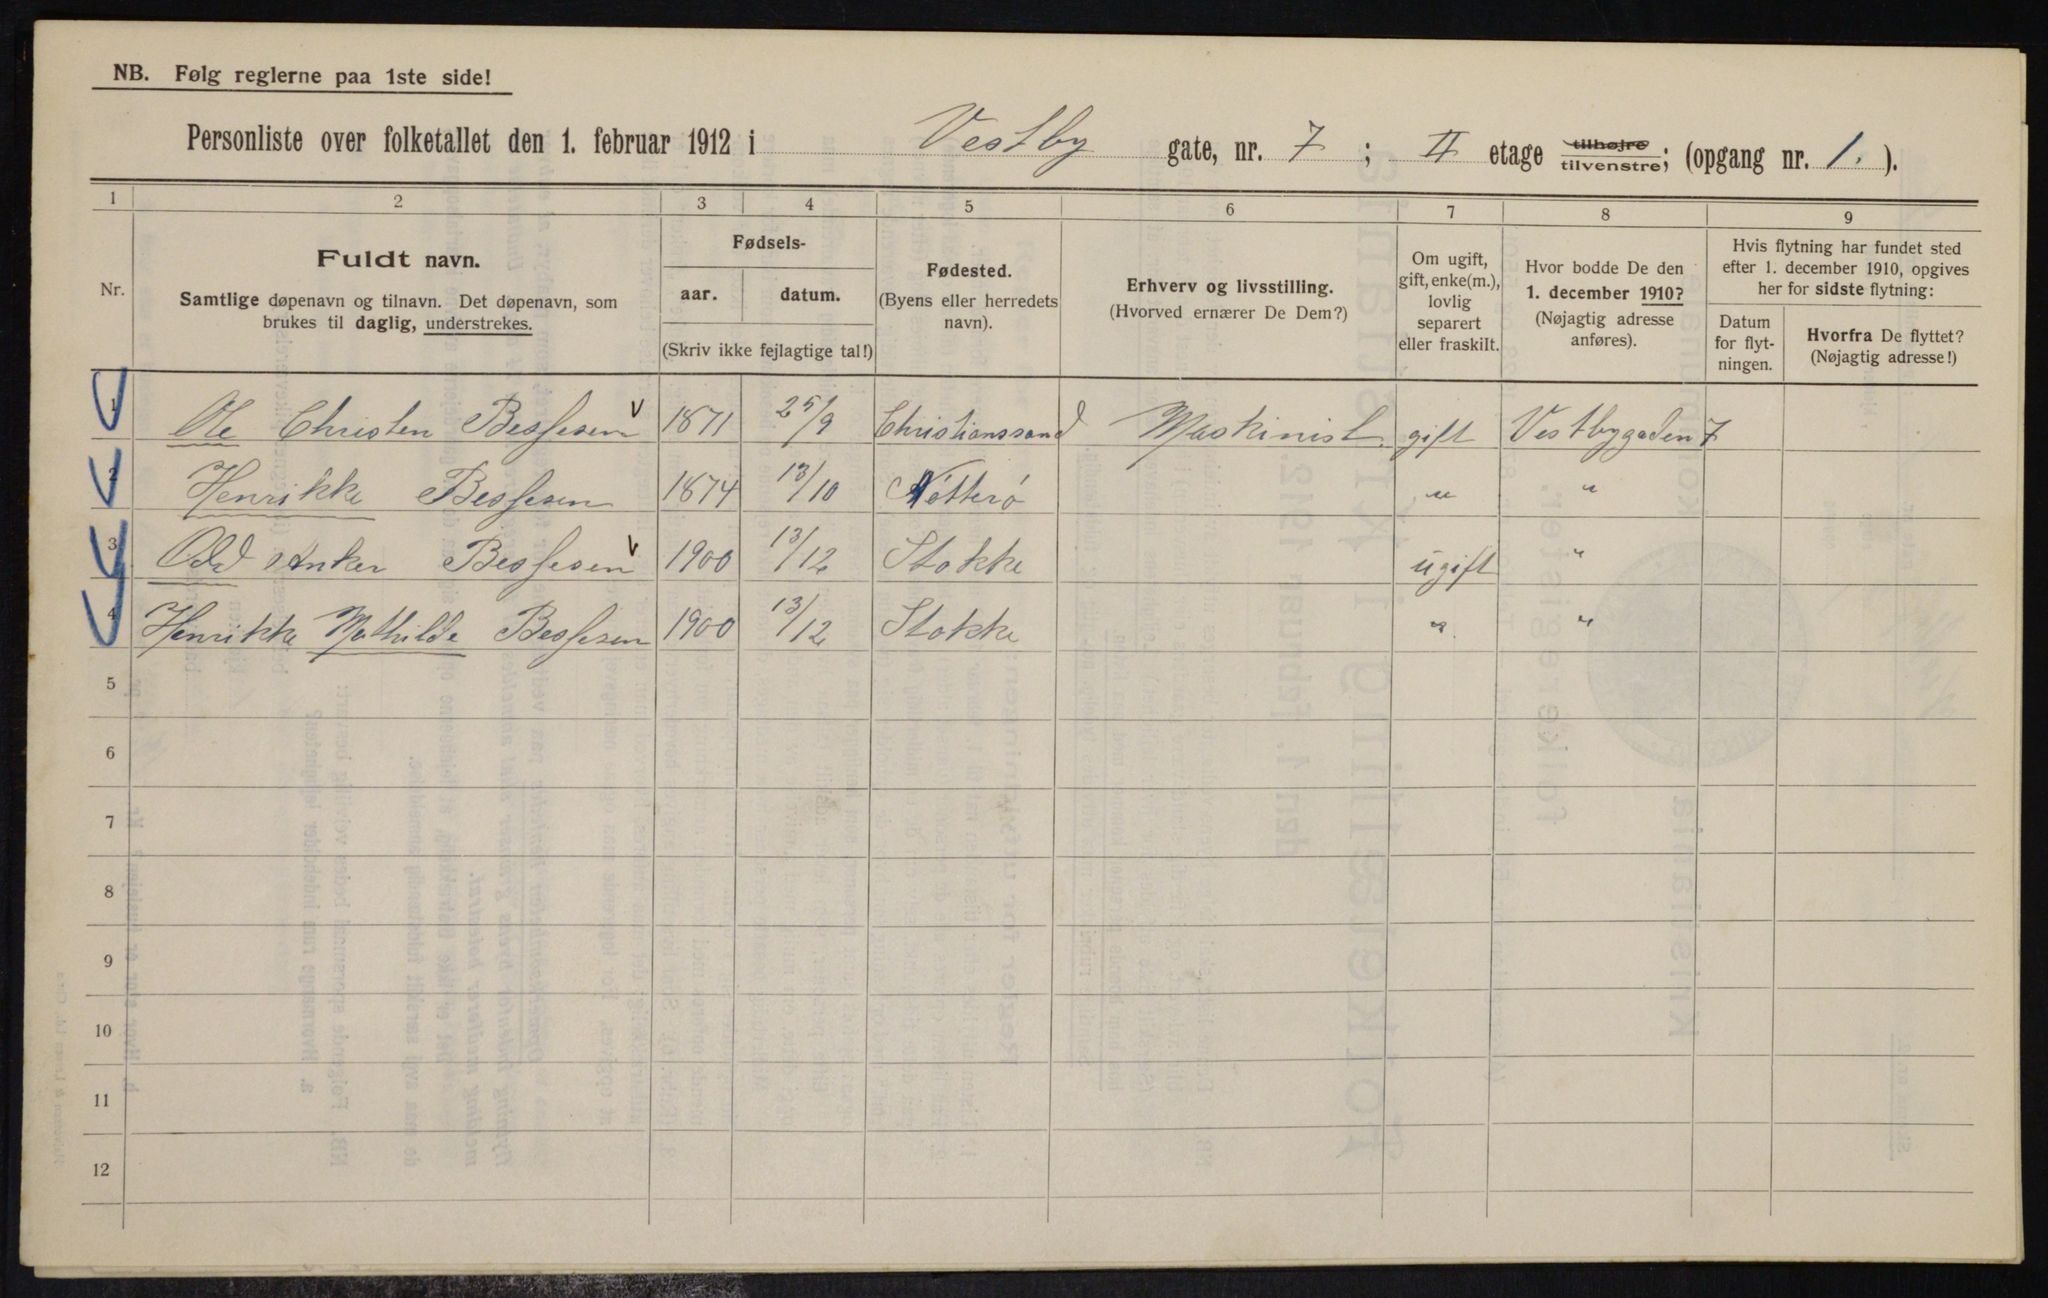 NB. Følg reglerne paa 1ste side!
Personliste over folketallet den 1. februar 1912 i Vestby gate, nr. 7 ; II etage tilhøjre tilvenstre; (opgang nr. 1. ).
1 2 3 4 5 6 7 8 9
Nr.
Fuldt navn.
Samtlige døpenavn og tilnavn. Det døpenavn, som
brukes til daglig, understrekes.
Fødsels-
aar. datum.
(Skriv ikke fejlagtige tal!)
Fødested.
(Byens eller herredets
navn).
Erhverv og livsstilling.
(Hvorved ernærer De Dem?)
Om ugift,
gift, enke(m.),
lovlig
separert
eller fraskilt.
Hvor bodde De den
1. december 1910?
(Nøjagtig adresse
anføres).
Hvis flytning har fundet sted
efter 1. december 1910, opgives
her for sidste flytning:
Datum
for flyt-
ningen.
Hvorfra De flyttet?
(Nøjagtig adresse!)
1 Ole Christen Bessesen 1871 25/9 Christianssand Maskinist. gift Vestbygaden 7
2 Henrikke Bessesen 1874 13/10 Nötterö " "
3 Odd Anker Bessesen 1900 13/12 Stokke ugift "
4 Henrikke Mathilde Bessesen 1900 13/12 Stokke " "
5
6
7
8
9
10
11
12